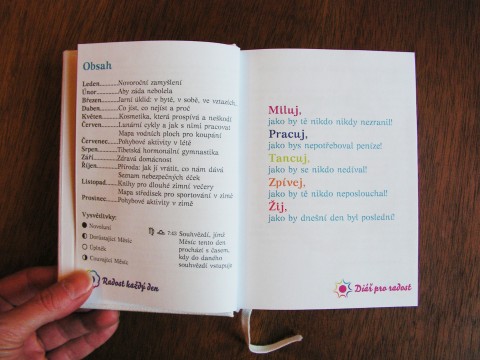 Obsah
Leden..........Novoroční zamyšlení
Únor..........Aby záda nebolela
Březen........Jarní úklid: v bytě, v sobě, ve vztazích,
Duben.........Co jíst, co nejíst a proč
Květen........Kosmetika, která prospívá a neškodí
Červen........Lunární cykly a jak s nimi pracovat
Mapa vodních ploch pro koupání
Červenec.....Pohybové aktivity v létě
Srpen..........Tibetská hormonální gymnastika
Září............Zdravá domácnost
Říjen..........Příroda: jak jí vrátit, co nám dává
Seznam nebezpečných éček
Listopad......Knihy pro dlouhé zimní večery
Mapa středisek pro sportování v zimě
Prosinec......Pohybové aktivity v zimě
Vysvětlivky:
Novoluní
Dorůstající Měsíc
Úplněk
Couvající Měsíc
7:43 Souhvězdí, jímž
Měsíc tento den
prochází s časem,
kdy do daného
souhvězdí vstupuje
Radost každý den
Miluj,
jako by tě nikdo nikdy nezranil!
Pracuj,
jako bys nepotřeboval peníze!
Tancuj,
jako by se nikdo nedíval!
Zpívej,
jako by tě nikdo neposlouchal!
Žij,
jako by dnešní den byl poslední!
Diář pro radost